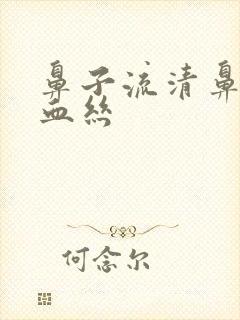 鼻子流清鼻
血絲
何念尔